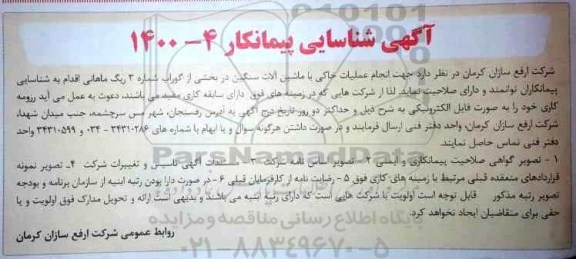 آگهی شناسایی پیمانکار ۴ - ۱۴۰۰
شرکت ارفع سازان کرمان در نظر دارد جهت انجام عملیات خاکی با ماشین آلات سنگین در بخشی از گوراب شماره ۳ ریگ ماهانی اقدام به شناسایی
پیمانکاران توانمند و دارای صلاحیت نماید. لذا از شرکت هایی که در زمینه های فوق دارای سابقه کاری مفید می باشند، دعوت به عمل می آید رزومه
کاری خود را به صورت فایل الکترونیکی به شرح ذیل و حداکثر دو روز تاریخ درج آگهی به آدرس رفسنجان، شهر مس سرچشمه، جنب میدان شهدا،
شرکت ارفع سازان کرمان، واحد دفتر فنی ارسال فرمایند و در صورت داشتن هرگونه سوال و یا ابهام با شماره های ۳۴۳۱۰۲۸۶ - ۰۳۴ و ۳۴۳۱۰۵۹۹ واحد
دفتر فنی تماس حاصل نمایند.
۱ - تصویر گواهی صلاحیت پیمانکاری و ایمنی ۲ - تصویر اساس نامه شرکت ۳ - مستندات آگهی تاسیس و تغییرات شرکت ۴ - تصویر نمونه
قراردادهای منعقده قبلی مرتبط با زمینه های کاری فوق ۵ - رضایت نامه از کارفرمایان قبلی ۶ - در صورت دارا بودن رتبه ابنیه از سازمان برنامه و بودجه
تصویر رتبه مذکور قابل توجه است اولویت با شرکت هایی است که دارای رتبه ابنیه می باشند و بدیهی است ارائه و تحویل مدارک فوق اولویت و یا
حقی برای متقاضیان ایجاد نخواهد کرد.
روابط عمومی شرکت ارفع سازان کرمان
ParsNamadData
پایگاه اطلاع رسانی مناقصه و مزایده
۰۲۱-۸۸۳۴۹۶۷۰-۵